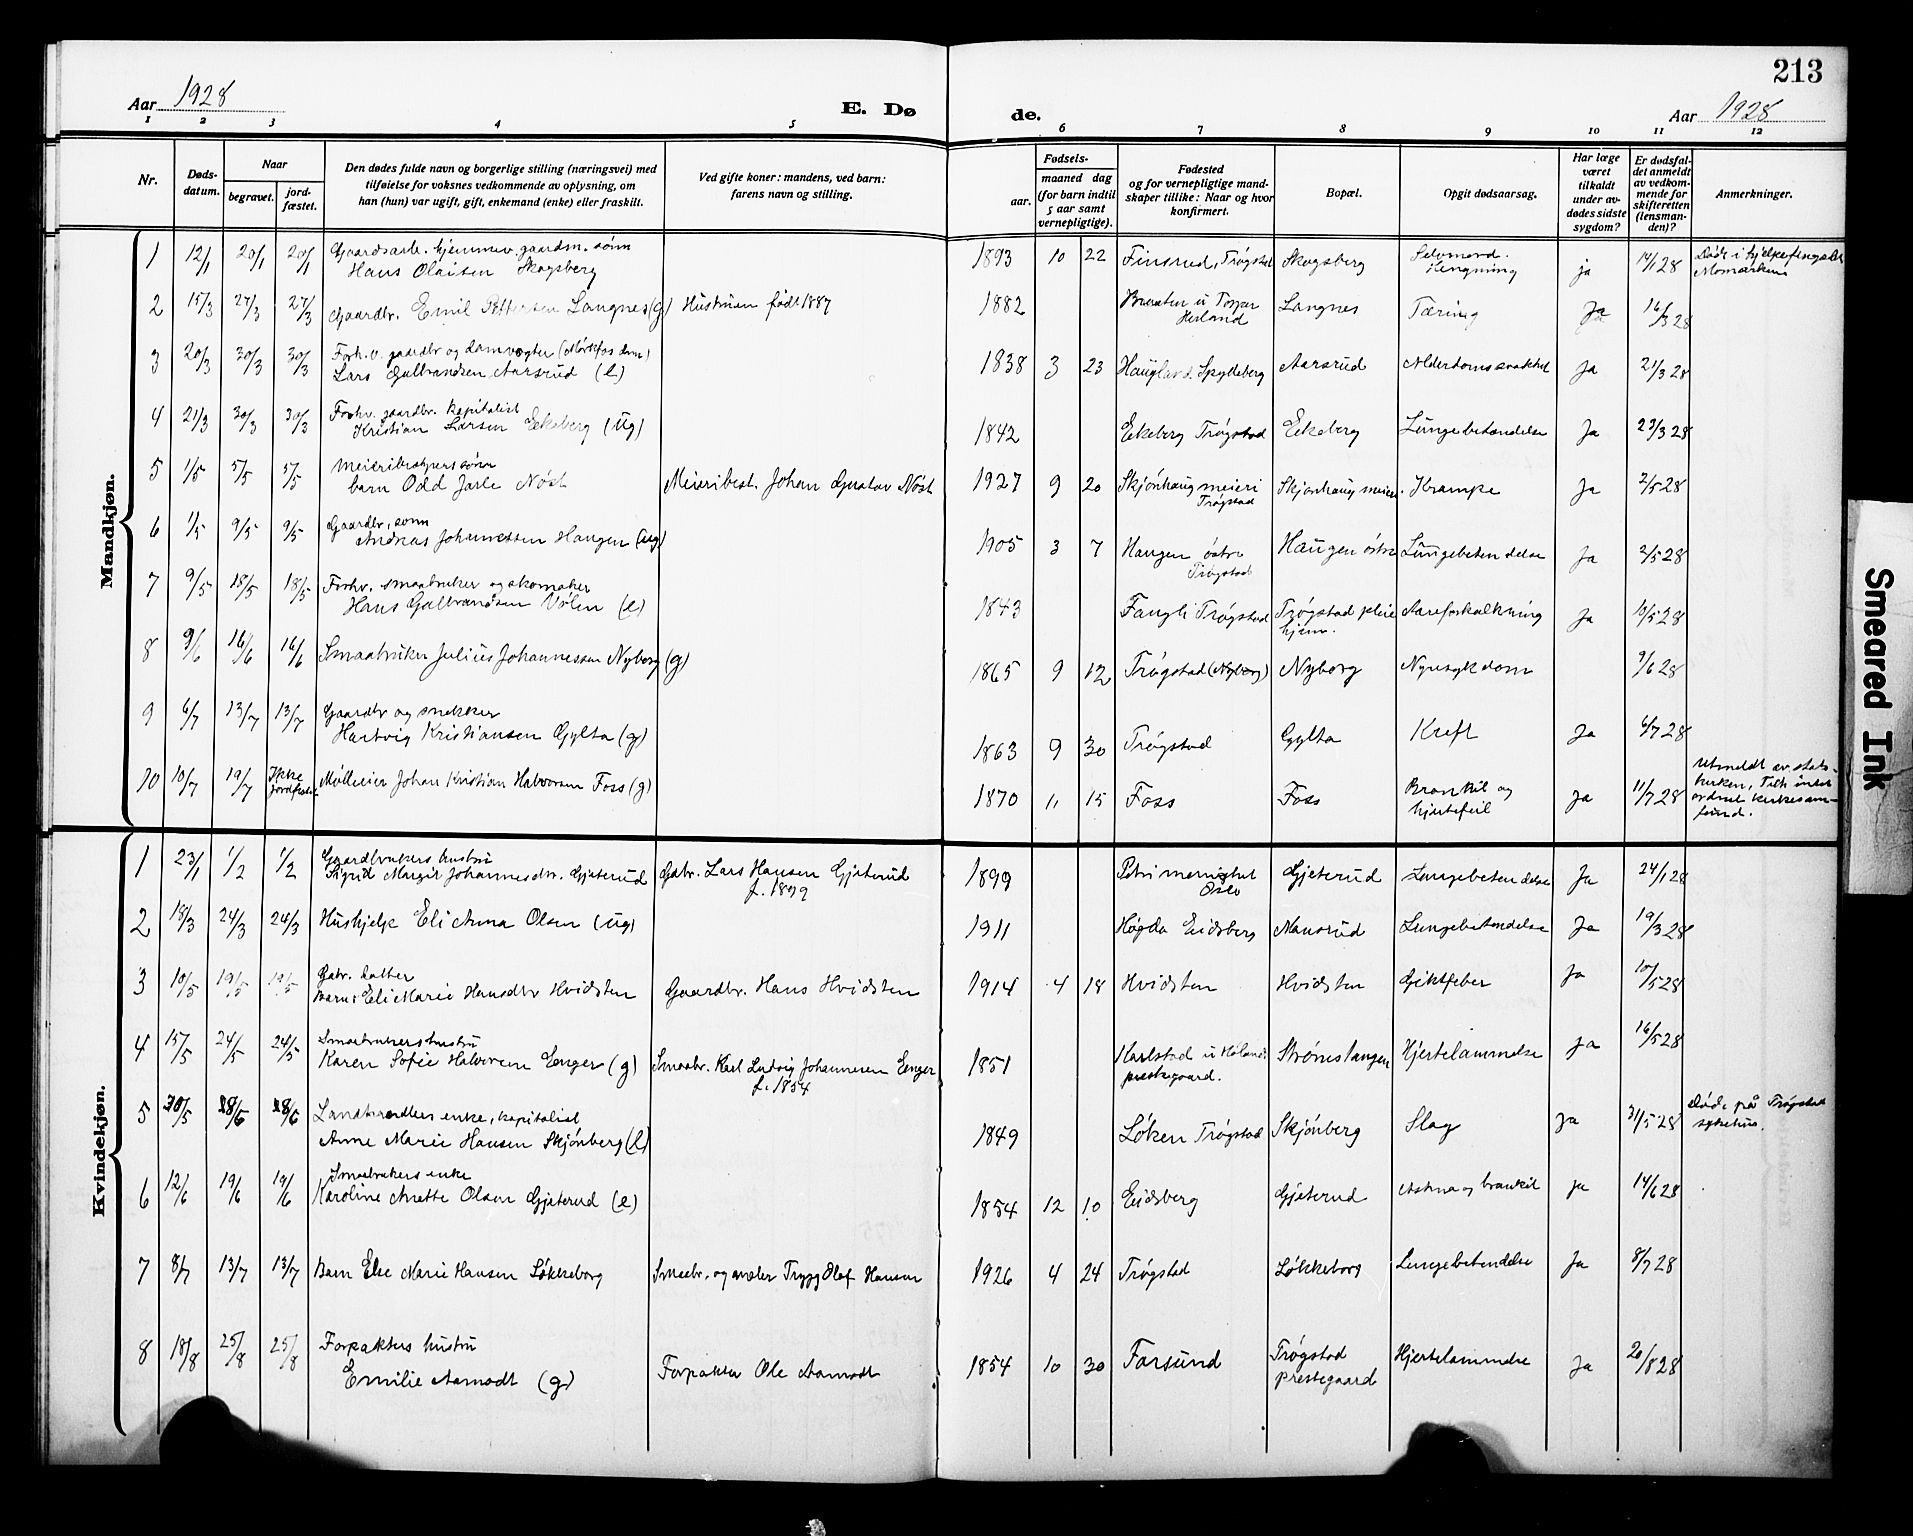 213
Aar 1928
E. Dø
de.
Aar 1928
1 2 3 4 5 6 7 8 9 10 11 12
Nr.
Døds-
datum.
Naar
begravet.
jord-
fæstet.
Den dødes fulde navn og borgerlige stilling (næringsvei) med
tilføielse for voksnes vedkommende av oplysning, om
han (hun) var ugift, gift, enkemand (enke) eller fraskilt.
Ved gifte koner: mandens, ved barn:
farens navn og stilling.
Fødsels-
aar.
maaned dag
(for barn indtil
5 aar samt
vernepligtige).
Fødested
og for vernepligtige mand-
skaper tillike: Naar og hvor
konfirmert.
Bopæl.
Opgit dødsaarsag.
Har læge
været
tilkaldt
under av-
dødes sidste
sygdom?
Er dødsfal-
det anmeldt
av vedkom-
mende for
skifteretten
(lensman-
den)?
Anmerkninger.
Mandkjøn.
1 12/1 20/1 20/1 Gaardsarb. hjemmev. gaardm. sønn
Hans Olaisen Skogsberg
1893 10 22 Finsrud, Trøgstad Skogsberg Selvmord.
Hengning ja 14/1 28 Døde i hjelpefengslet
Momarken
2 15/3 27/3 27/3 Gaardbr. Emil Pettersen Langnes (g) Hustruen født 1887
1882 Braaten u Torper
Herland Langnes Tæring Ja 16/3 28
3 20/3 30/3 30/3 Forh.v. gaardbr og damvogter (Mørkfos dam)
Lars Gulbrandsen Aarsrud (e)
1838 3 23 Haugland. Spydeberg Aarsrud Alderdomssvakhet Ja 21/3 28
4 21/3 30/3 30/3 Forhv. gaardbr. kapitalist
Kristian Larsen Eekeberg (ug)
1842 Eekeberg Trøgstad Eekeberg Lungebetændelse Ja 23/3 28
5 1/5 5/5 5/5 Meieribestyrers sønn
barn Odd Jarle Nøst Meieribest. Johan Gustav Nøst
1927 9 20 Skjønhaug meieri
Trøgstad Skjønhaug meieri. Krampe Ja 2/5 28
6 1/5 9/5 9/5 Gaardbr. sønn
Andreas Johannessen Haugen (ug)
1905 3 7 Haugen østre
Trøgstad Haugen østre Lungebetendelse Ja 2/5 28
7 9/5 18/5 18/5 Forhv. smaabruker og skomaker
Hans Gulbrandsen Vølen (e)
1843 Fangli Trøgstad Trøgstad pleie
hjem. Aareforkalkning Ja 10/5 28
8 9/6 16/6 16/6 Smaabruker Julius Johannessen Nyborg (g)
1865 9 12 Trøgstad (Nyborg) Nyborg Nyresykdom 9/6 28
9 6/7 13/7 13/7 Gaardbr og snekker
Hartvig Kristiansen Gylta (g)
1863 9 30 Trøgstad Gylta Kreft Ja 6/7 28
10 10/7 19/7 Ikke
jordfestet Mølleeier Johan Kristian Halvorsen Foss (g)
1870 11 15 Foss Foss Bronkit og
hjertefeil Ja 11/7 28 Utmeldt av stats-
kirken, Tilh. intet
ordnet kirkesam-
fund.
Kvindekjøn.
1 23/1 1/2 1/2 Gaardbrukers hustru
Sigrid Margit Johannesdtr. Gjeterud Gdbr. Lars Hansen Gjeterud
f. 1899
1899 Petri menighet
Oslo Gjeterud Lungebetendelse Ja 24/1 28
2 18/3 24/3 24/3 Hushjelp Eli Anna Olsen (ug)
1911 Høgda Eidsberg Mansrud Lungebetendelse Ja 19/3 28
3 10/5 19/5 19/5 Gdbr. datter
Barn Eli Marie Hansdtr Hvidsten Gaardbr. Hans Hvidsten
1914 4 18 Hvidsten Hvidsten Giktfeber Ja 10/5 28
4 15/5 24/5 24/5 Smaabrukers hustru
Karen Sofie Halvorsen Enger (g) Smaabr. Karl Ludvig Johannesen Enger
f. 1854
1851 Karlstad u Høland
prestegaard. Strømslangen Hjertelammelse Ja 16/5 28
5 30/5 8/6 8/6 Landhandlers enke, kapitalist
Anne Marie Hansen Skjønberg (e)
1849 Løken Trøgstad Skjønberg Slag Ja 31/5 28 Døde på Trøgstad
sykehus.
6 12/6 19/6 19/6 Smaabrukers enke
Karoline Anette Olsen Gjeterud (e)
1854 12 10 Eidsberg Gjeterud Astma og bronkit ja 14/6 28
7 8/7 13/7 13/7 Barn Else Marie Hansen Løkkeborg Smaabr. og maler Trygg Olaf Hansen
1926 4 24 Trøgstad Løkkeborg Lungebetendelse Ja 8/7 28
8 18/8 25/8 25/8 Forpakters hustru
Emilie Aamodt (g) Forpakter Ole Aamodt
1854 10 30 Farsund Trøgstad
prestegaard Hjertelammelse Ja 20/8 28
Smeared Ink